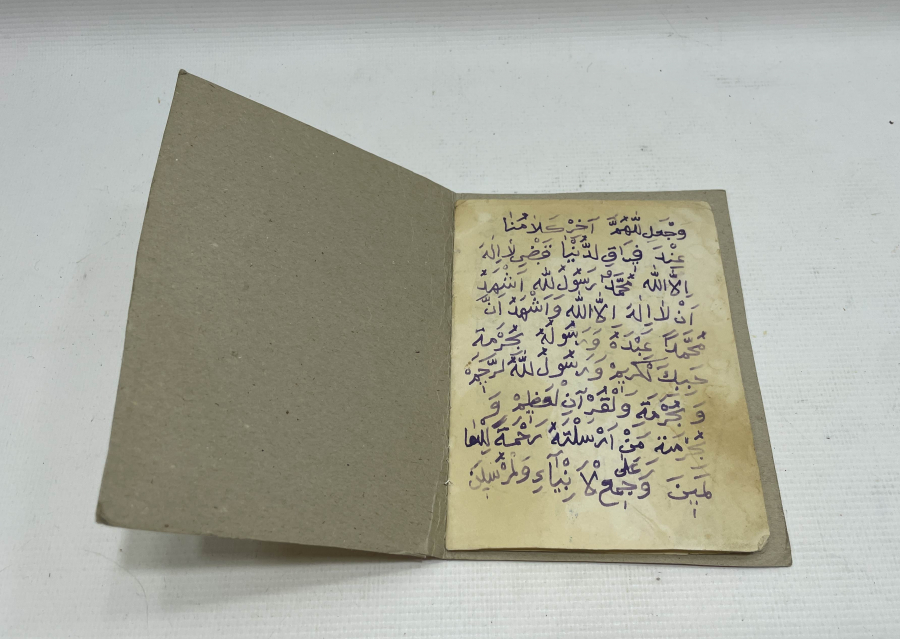 وَجَّعَلِ لّٰلهُمَّ آخِرْ كَلَامُنَا
عِنْدَ فِرَاقِ لدُّنْيَا قَبْضِى لاَاِلهَ
اِلاَّاللّٰه مُحَمَّدْ رَسُوْلُ لله اَشْهَدُ
اَنْ لاَاِلهَ اِلاَّاللّٰه وَاَشْهَدُ اَنَّ
مُحَمَّدًا عَبْدَهُ وَرَسُولُهُ بِحُرْمَةِ
حَبِبِكَ لْكَرِيمْ وَرَسُولُ للهُ لرَّحِيمْ
وَبِحُرْمَةِ وَلْقُرْآنِ لْعَظِيمْ وَ
بِحُرْمَتِهِ مَنْ اَرْسَلْتَهُ رَحْمَةً لِلْعَا
لَمِينَ وَجَمِعِ عَلَى لْاَنْبِيَآءِ وَلْمُرْسَلِينَ